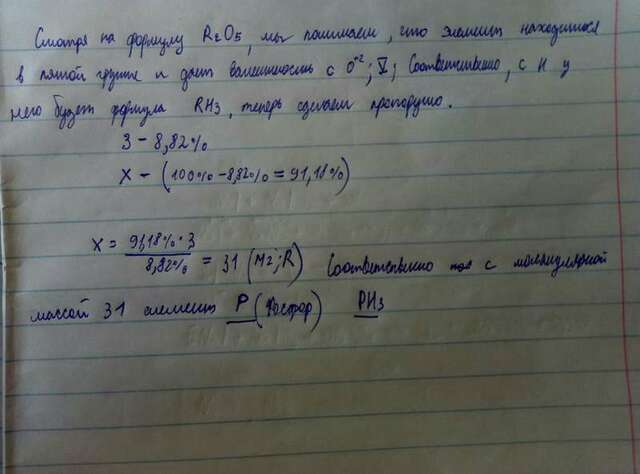 Смотря на формулу R₂O₅, мы понимаем, что элемент находится
в пятой группе и дает валентность с O⁻²; V; Соответственно, с H у
него будет формула RH₃, теперь сделаем пропорцию.
3 – 8,82%
X – (100% - 8,82% = 91,18%)
X = 91,18% · 3 / 8,82% = 31 (Mr; R) Соответственно с молекулярной
массой 31 элемент P (Фосфор) PH₃